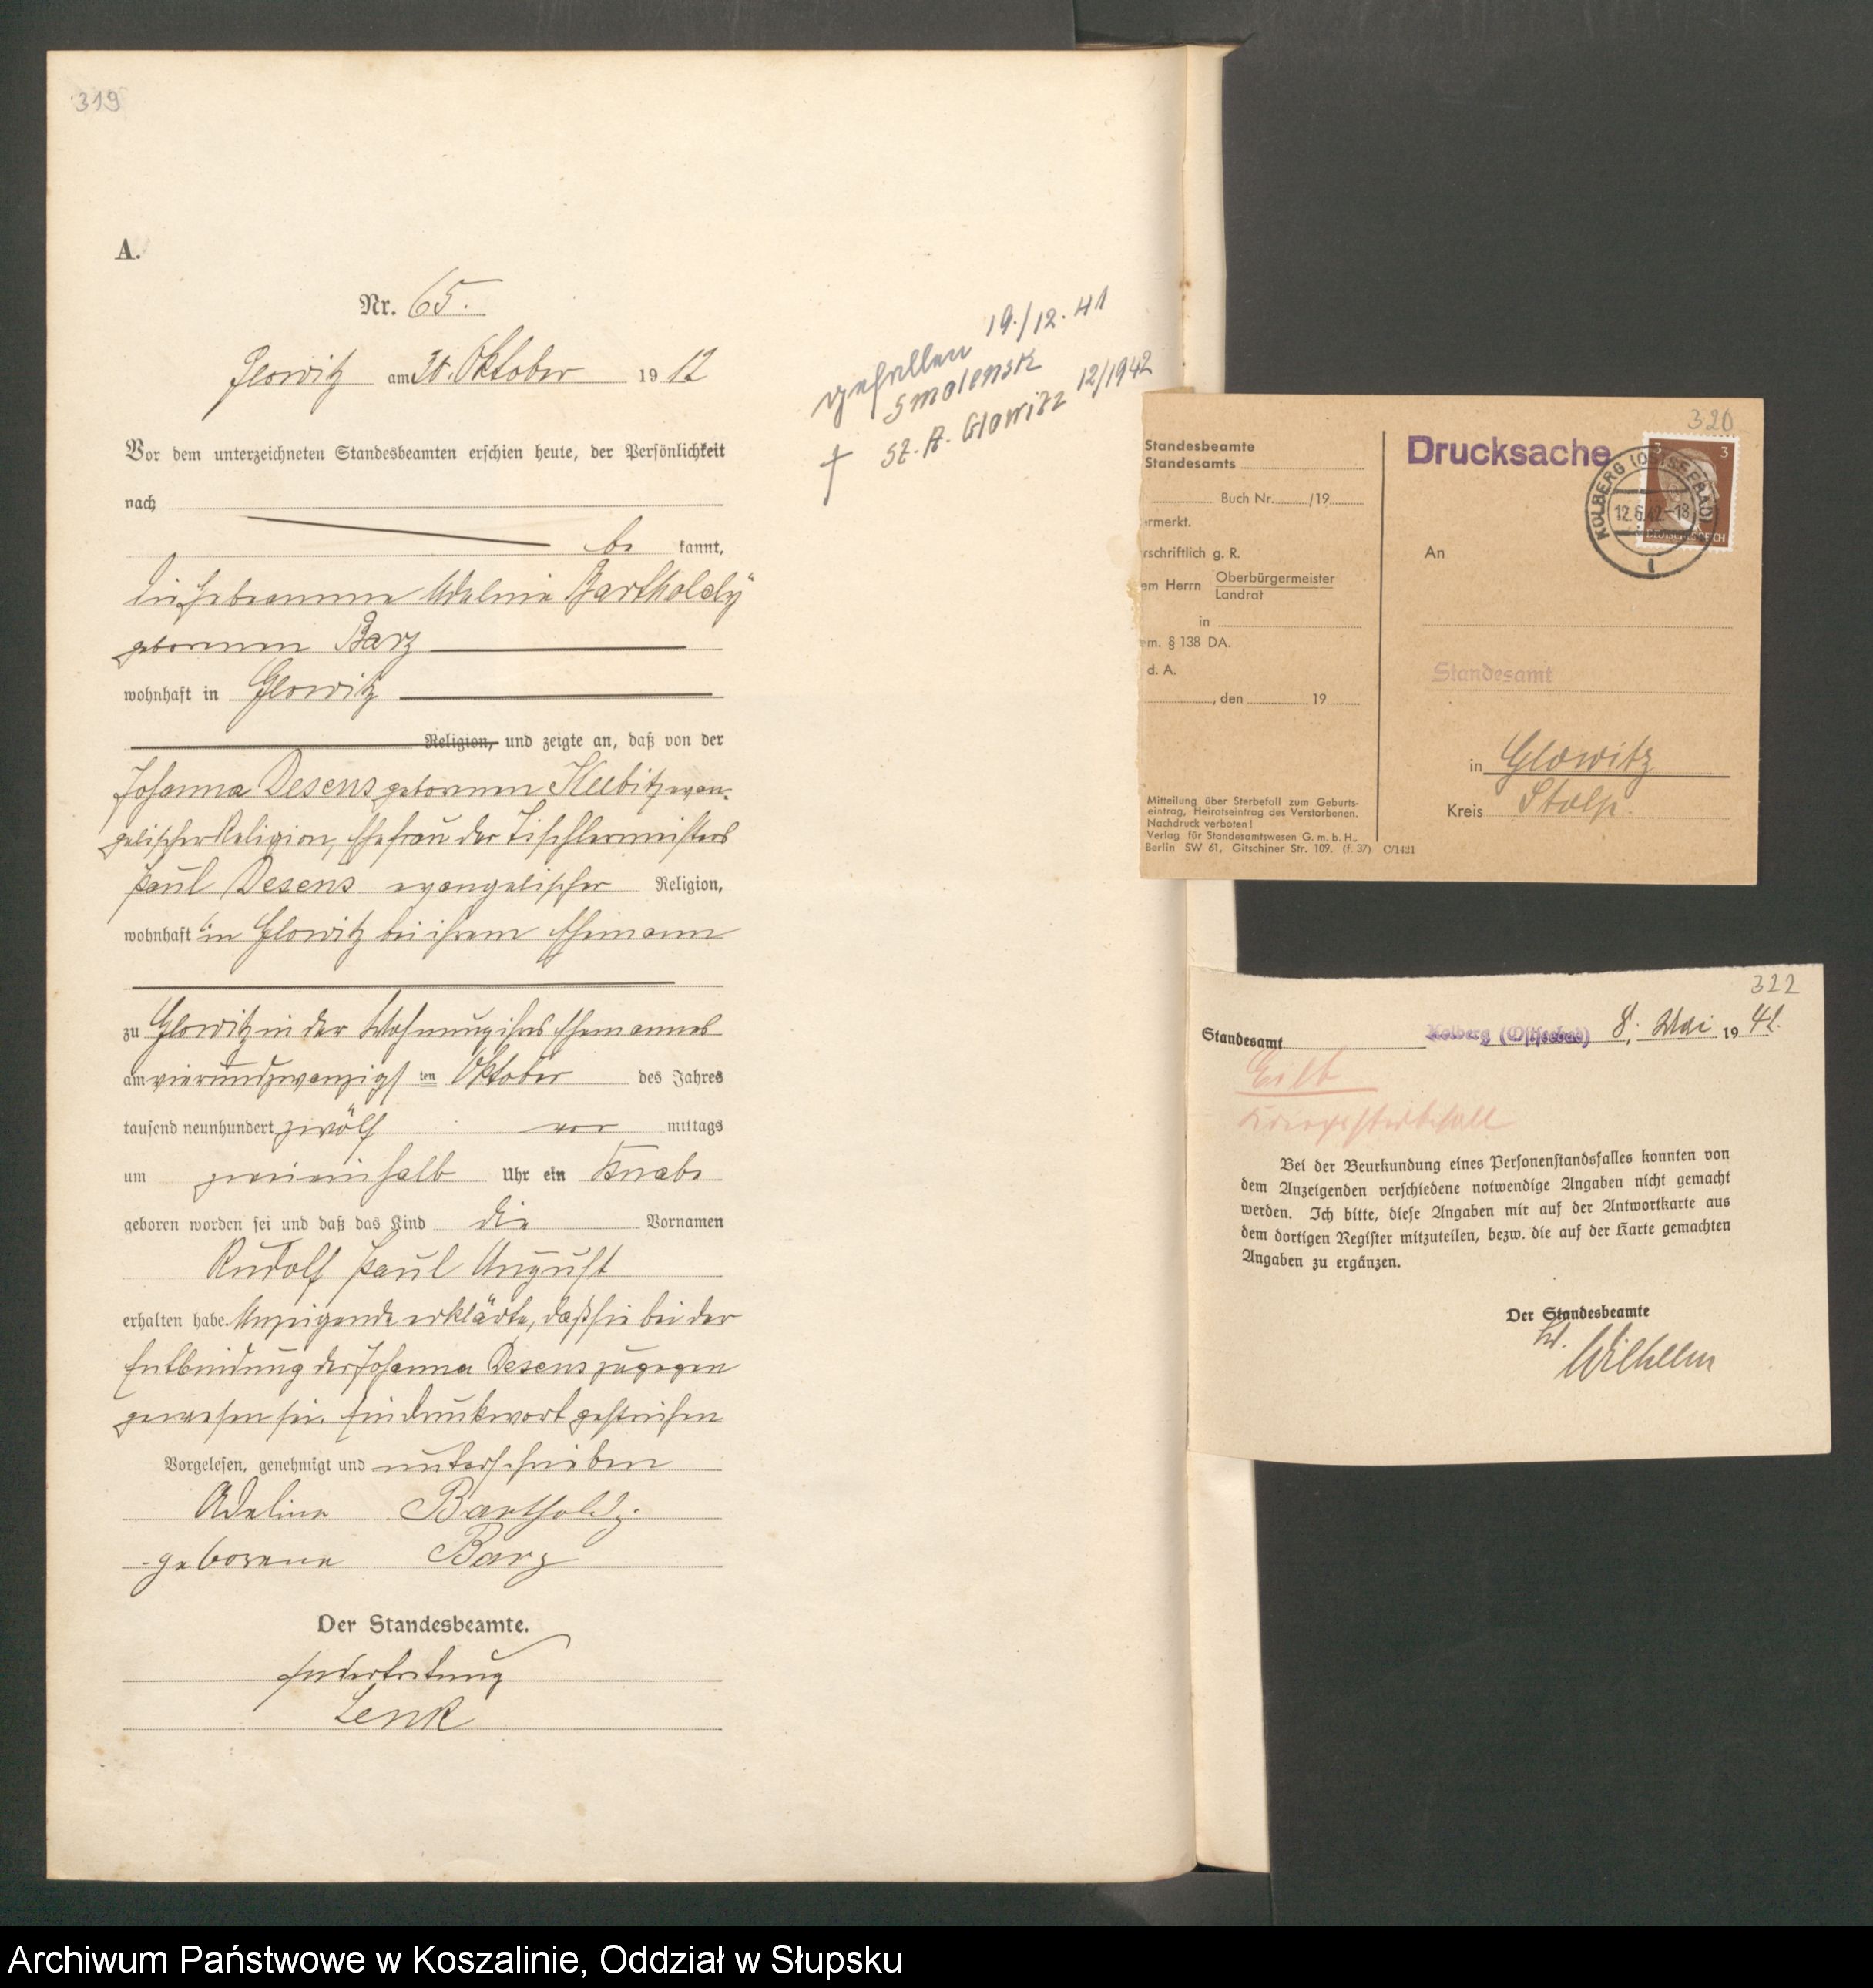 319
A.
Nr. 65.
Glowitz am 30. Oktober 1912
Vor dem unterzeichneten Standesbeamten erschien heute, der Persönlichkeit
nach
be kannt,
die Hebeamme Adeline Bartholdy
geborenen Barz
wohnhaft in Glowitz
Religion, und zeigte an, daß von der
Johanna Desens geborenen Kubitz evan-
gelischer Religion, Ehefrau des Tischlermeisters
Paul Desens evangelischer Religion,
wohnhaft in Glowitz bei ihrem Ehemann
zu Glowitz in der Wohnung ihres Ehemannes
am vierundzwanzigsten Oktober des Jahres
tausend neunhundert zwölf vor mittags
um zweieinhalb Uhr ein Knabe
geboren worden sei und daß das Kind die Vornamen
Rudolf Paul August
erhalten habe. Anzeigende erklärte, daß sie bei der
Entbindung der Johanna Desens zugegen
gewesen sei. Ein Druckwort gestrichen
Vorgelesen, genehmigt und unterschrieben
Adeline Bartholdy.
geborene Barz
Der Standesbeamte.
In Vertretung
Lenk
gefallen 19./12. 41
Smolensk
† St. A. Glowitz 12/1942
320
Standesbeamte
Standesamts
Buch Nr. /19
rmerkt.
rschriftlich g. R.
em Herrn Oberbürgermeister
Landrat
in
em. § 138 DA.
d. A.
, den 19
Mitteilung über Sterbefall zum Geburts-
eintrag, Heiratseintrag des Verstorbenen.
Nachdruck verboten!
Verlag für Standesamtswesen G. m. b. H.,
Berlin SW 61, Gitschiner Str. 109. (f. 37) C/1421
Drucksache
3 3
DEUTSCHES REICH
KOLBERG (OSTSEEBAD)
12.6.42-18
1
An
Standesamt
in Glowitz
Kreis Stolp.
322
Standesamt Kolberg (Ostseebad) 8. Mai 1942.
Eilt
Kriegssterbefall
Bei der Beurkundung eines Personenstandsfalles konnten von
dem Anzeigenden verschiedene notwendige Angaben nicht gemacht
werden. Ich bitte, diese Angaben mir auf der Antwortkarte aus
dem dortigen Register mitzuteilen, bezw. die auf der Karte gemachten
Angaben zu ergänzen.
Der Standesbeamte
Wilhelm
Archiwum Państwowe w Koszalinie, Oddział w Słupsku